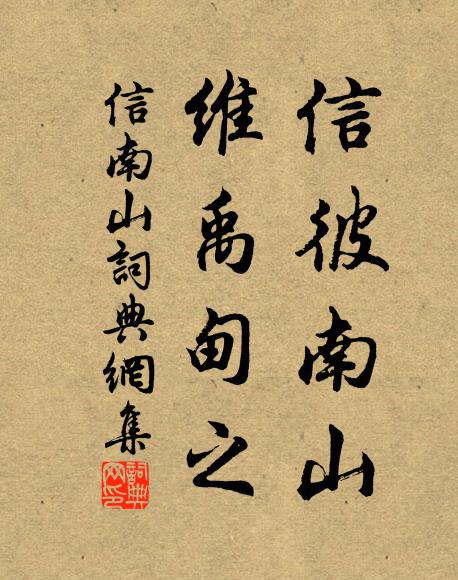 信彼南山
維禹甸之
信南山詞典網集
詞典網印